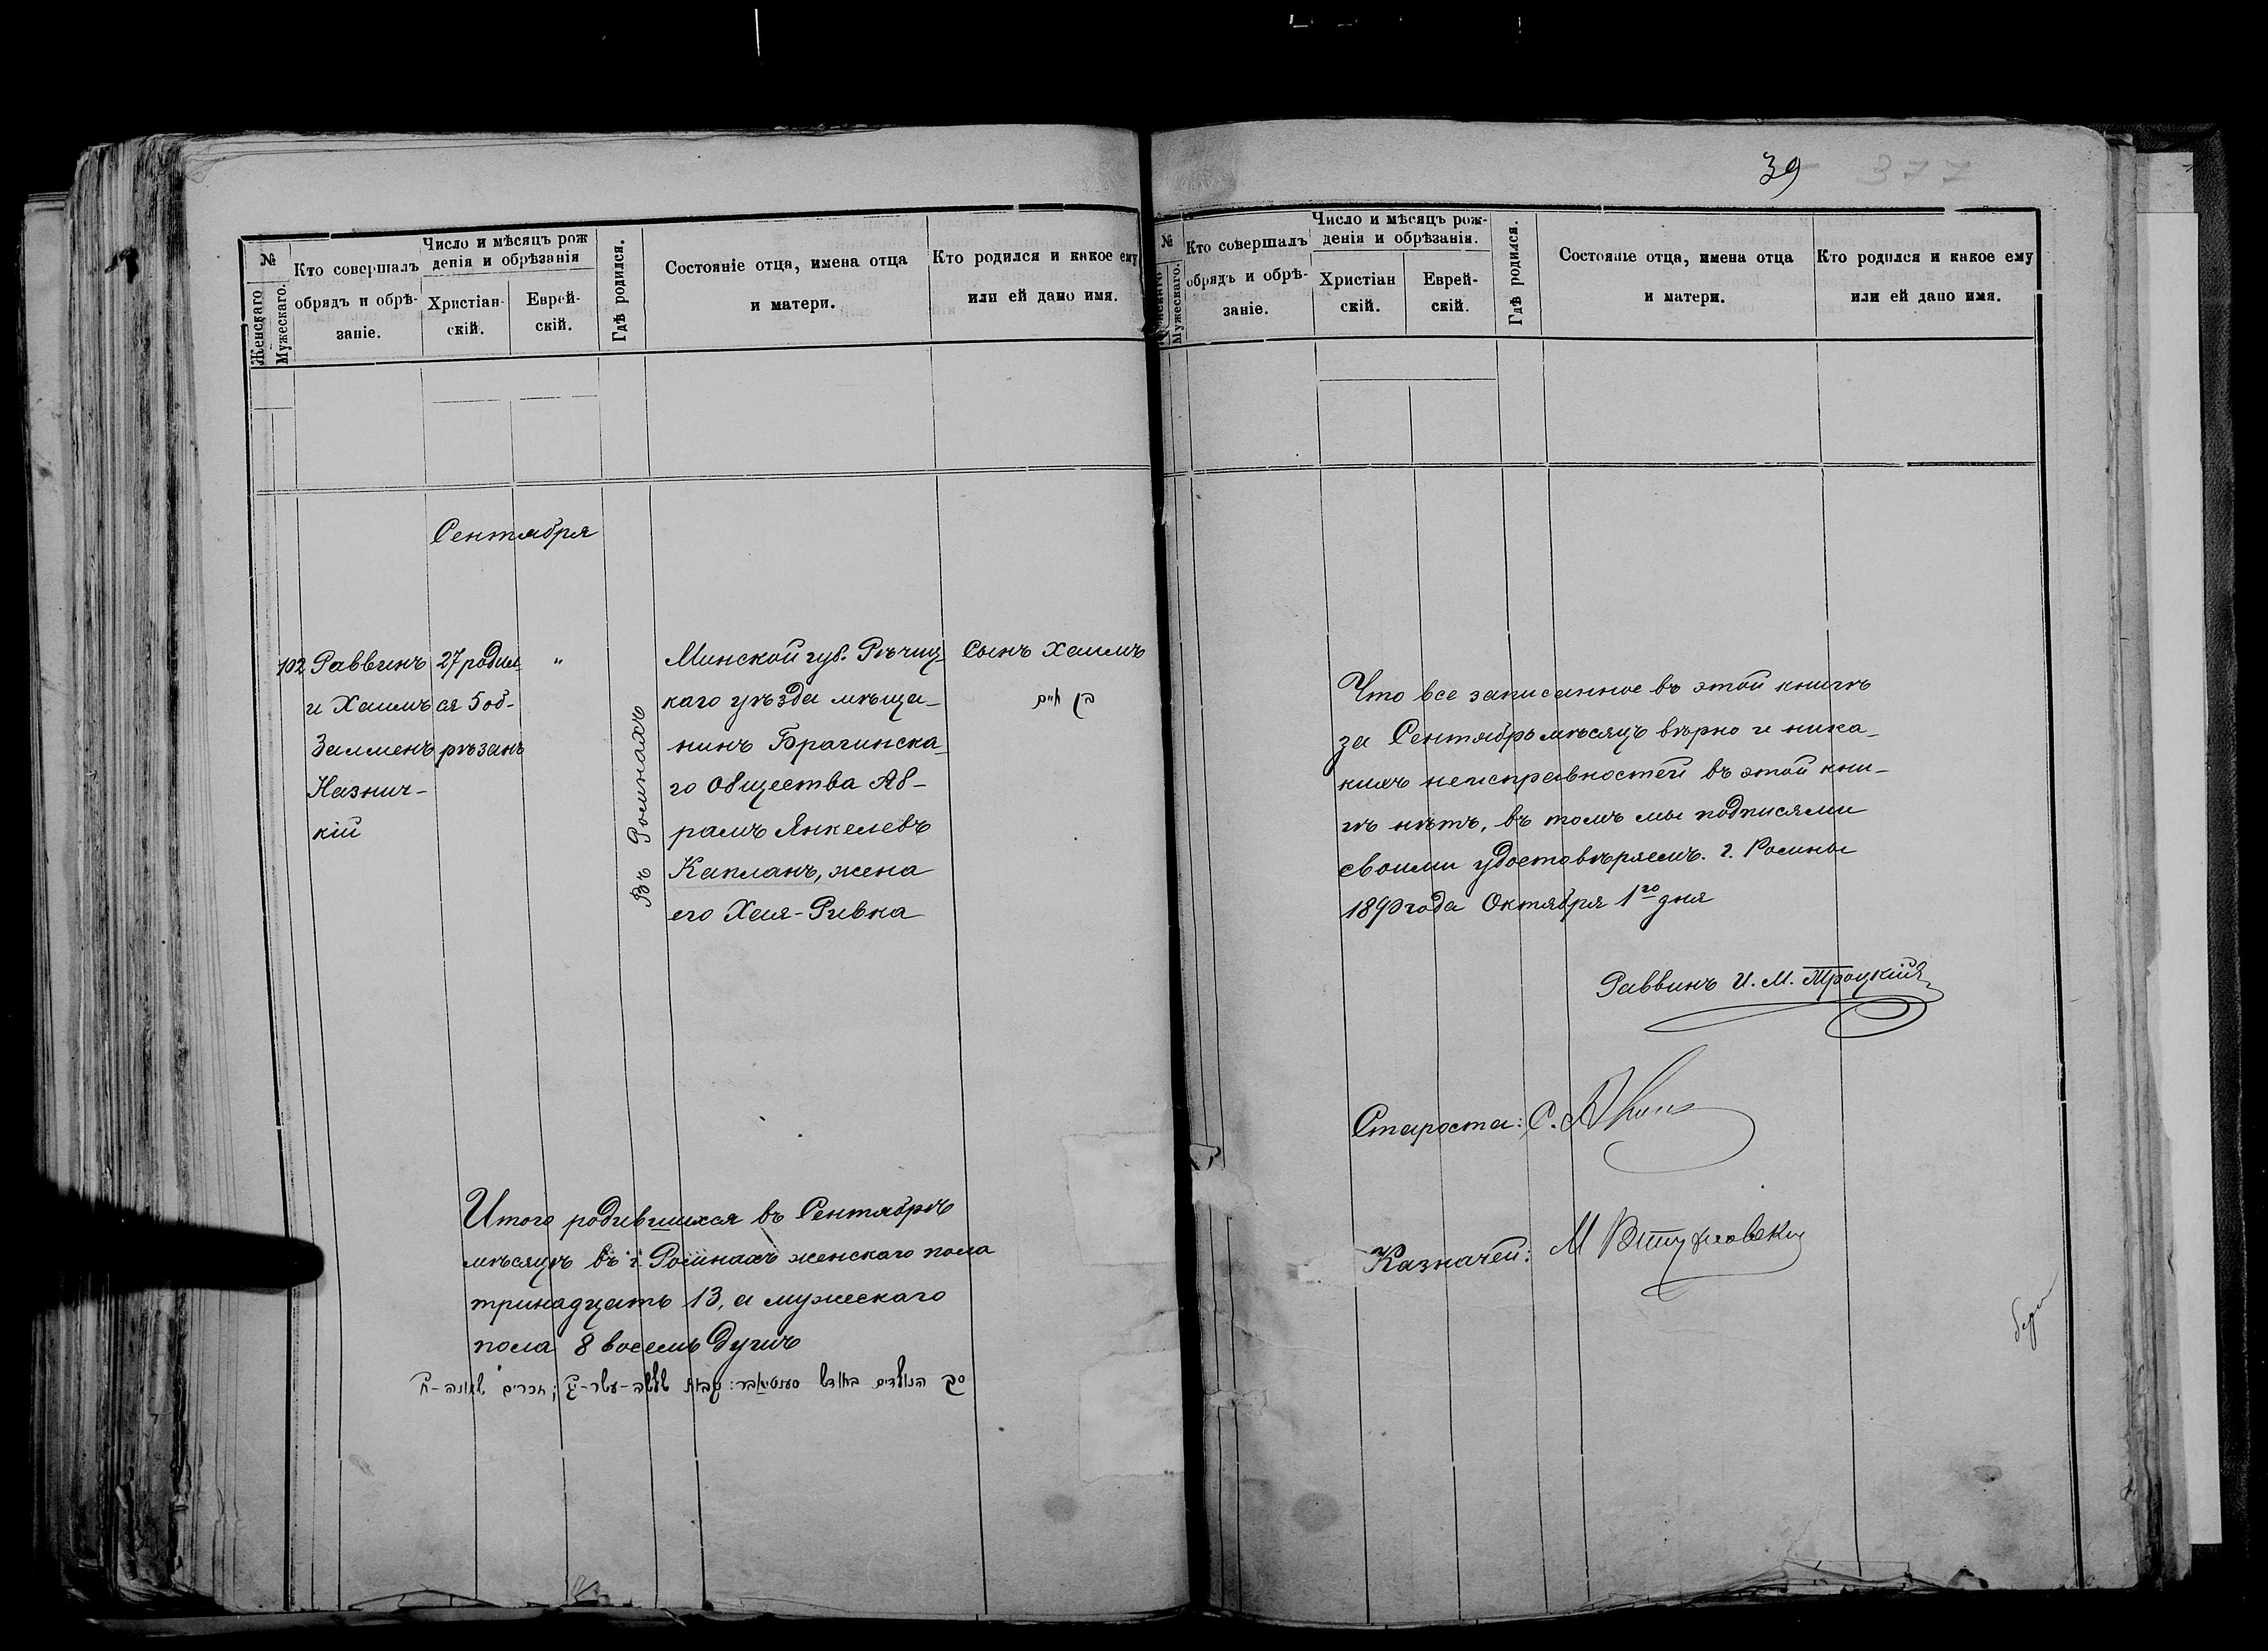 №
Женскаго
Мужескаго.
Кто совершалъ
обрядъ и обрѣ-
заніе.
Число и мѣсяцъ рож
денія и обрѣзанія
Христіан-
скій.
Еврей-
скій.
Гдѣ родился.
Состояніе отца, имена отца
и матери.
Кто родился и какое ему
или ей дано имя.
Сентября
102
Раввинъ
и Хаимъ
Залменъ
кій
27 родил
ся 5 об-
рѣзанъ
"
Въ Ромнахъ
Минской губ. Рѣчиц-
каго уѣзда мѣща-
нинъ Брагинска-
го Общества Аб-
рамъ Янкелевъ
Капланъ, жена
его Хая-Ривка
Сынъ Хаимъ
בן חיים
Итого родившихся въ Сентябрѣ
мѣсяцѣ въ г. Ромнахъ женскаго пола
тринадцать 13, а мужескаго
пола 8 восемь душъ
סך הנולדים בחודש סענטיאבר: נקבות שלשה-עשר-יג; זכרים שמונה-ח
39
377
№
Женскаго
Мужескаго.
Кто совершалъ
обрядъ и обрѣ-
заніе.
Число и мѣсяцъ рож-
денія и обрѣзанія.
Христіан
скій.
Еврей-
скій.
Гдѣ родился.
Состояніе отца, имена отца
и матери.
Кто родился и какое ему
или ей дано имя.
Что все записанное въ этой книгѣ
за Сентябрь мѣсяцъ вѣрно и ника-
кихъ неисправностей въ этой кни-
гѣ нѣтъ, въ томъ мы подписями
своими удостовѣряемъ. г. Ромны
1890 года Октября 1го дня
Раввинъ И. М. Троцкій
Староста: С.
Казначей: М